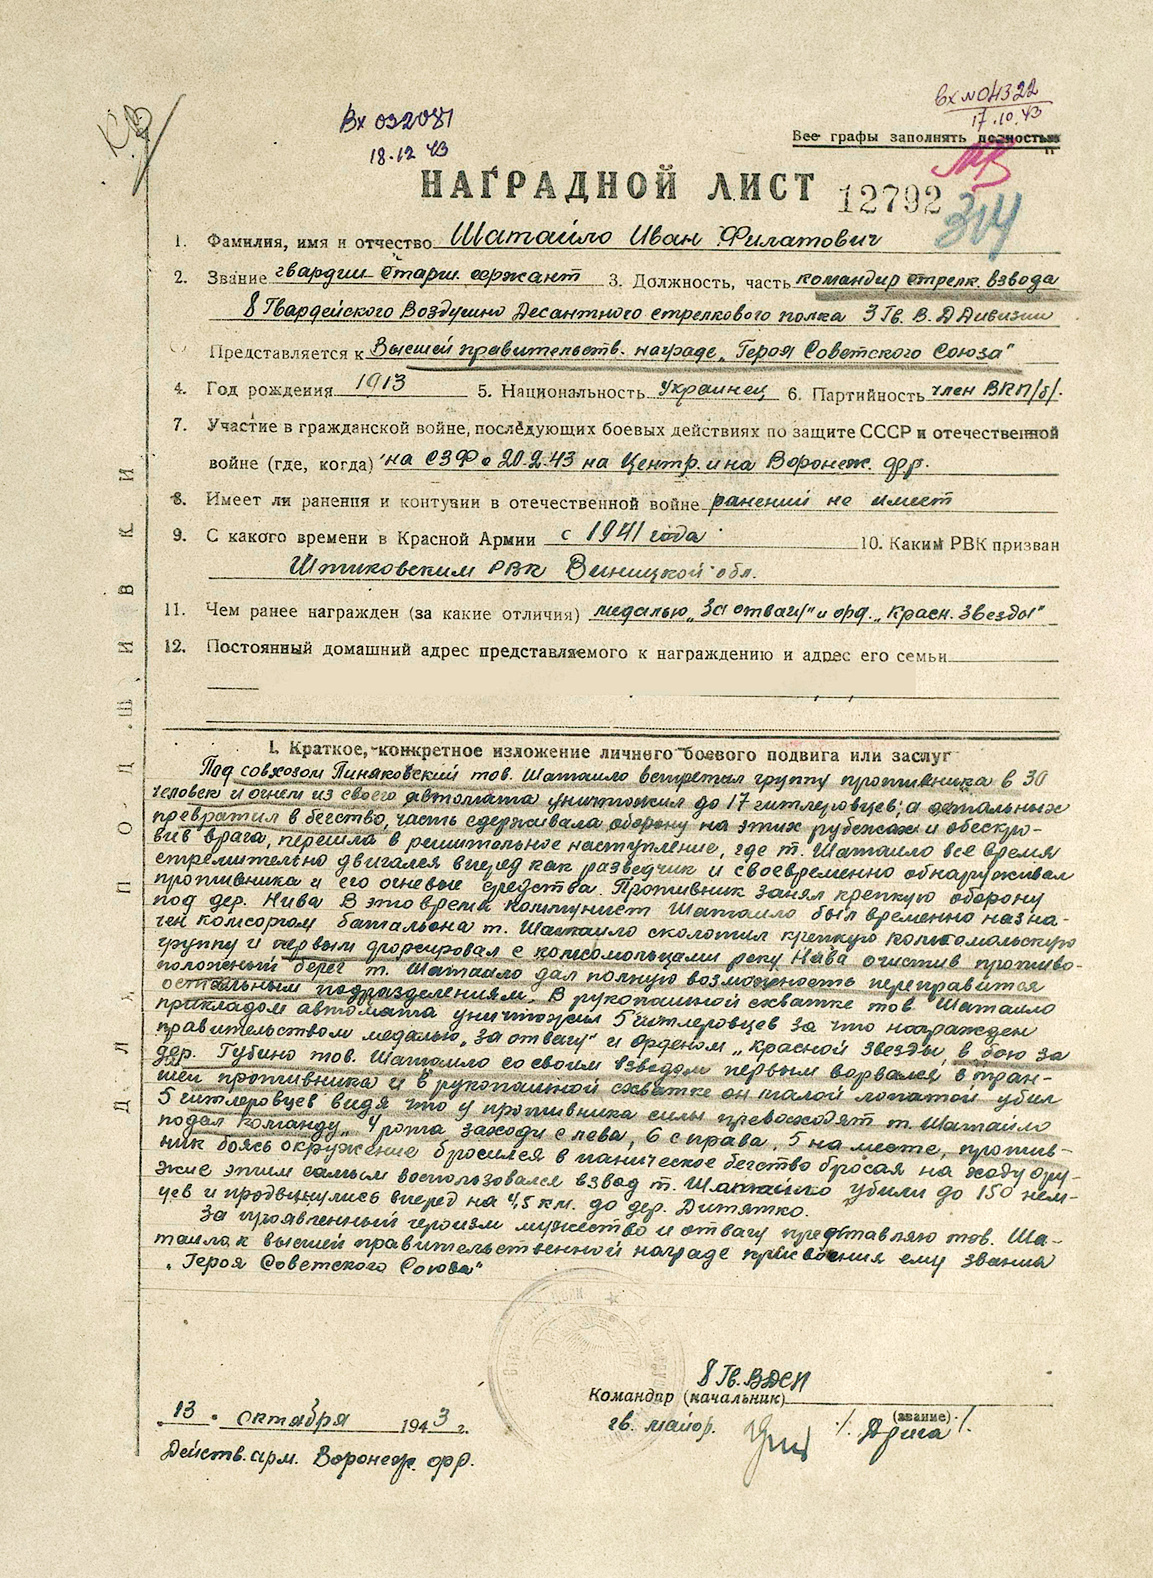 Вх 032081
18.12 43
Вх №04322
17.10.43
Все графы заполнять полностью
НАГРАДНОЙ ЛИСТ 12792
314
1. Фамилия, имя и отчество Шатайло Иван Филатович
2. Звание гвардии Старш. сержант 3. Должность, часть командир стрелк. взвода
8 Гвардейского Воздушно Десантного стрелкового полка 3 Гв. В. Д Дивизии
Представляется к Высшей правительств. награде „Героя Советского Союза"
4. Год рождения 1913 5. Национальность Украинец 6. Партийность член ВКП/б/.
7. Участие в гражданской войне, последующих боевых действиях по защите СССР и отечественной
войне (где, когда) на СЗФ с 20.2.43 на Центр. и на Воронеж. фр.
8. Имеет ли ранения и контузии в отечественной войне ранений не имеет
9. С какого времени в Красной Армии с 1941 года 10. Каким РВК призван
Шпиковским РВК Виницкой обл.
11. Чем ранее награжден (за какие отличия) медалью „За отвагу" и орд. „Красн. Звезды"
12. Постоянный домашний адрес представляемого к награждению и адрес его семьи
ДЛЯ ПОДШИВКИ
I. Краткое, конкретное изложение личного боевого подвига или заслуг
Под совхозом Пиняковский тов. Шатаило встретил группу противника в 30
человек и огнем из своего автомата уничтожил до 17 гитлеровцев, а остальных
превратил в бегство, часть сдерживала оборону на этих рубежах и обескро-
вив врага, перешла в решительное наступление, где т. Шатаило все время
стремительно двигался вперед как разведчик и своевременно обнаруживал
противника и его огневые средства. Противник занял крепкую оборону
под дер. Нива В это время коммунист Шатаило был временно назна-
чен комсоргом батальона т. Шатаило сколотил крепкую комсомольскую
группу и первым форсировал с комсомольцами реку Нива очистив противо-
положный берег т. Шатаило дал полную возможность переправится
остальным подразделениям. В рукопашной схватке тов. Шатаило
прикладом автомата уничтожил 5 гитлеровцев за что награжден
правительством медалью „За отвагу" и орденом „Красной Звезды, в бою за
дер. Губино тов. Шатаило со своим взводом первым ворвался в тран-
шеи противника и в рукопашной схватке он малой лопатой убил
5 гитлеровцев видя что у противника силы превосходят т. Шатайло
подал команду „4 рота заходи с лева, 6 с права, 5 на месте, против-
ник боясь окружение бросился в паническое бегство бросая на ходу ору-
жие этим самым воспользовался взвод т. Шатайло убили до 150 нем-
цев и продвинулись вперед на 4,5 км. до дер. Дитятко.
За проявленный героизм мужество и отвагу представляю тов. Ша-
таило, к высшей правительственной награде присвоения ему звания
„Героя Советского Союза"
8 Гв. ВДСП
Командир (начальник)
(звание)
гв. майор. /. Дрига /.
„13" октября 1943 г.
Действ. арм. Воронеж. фр.